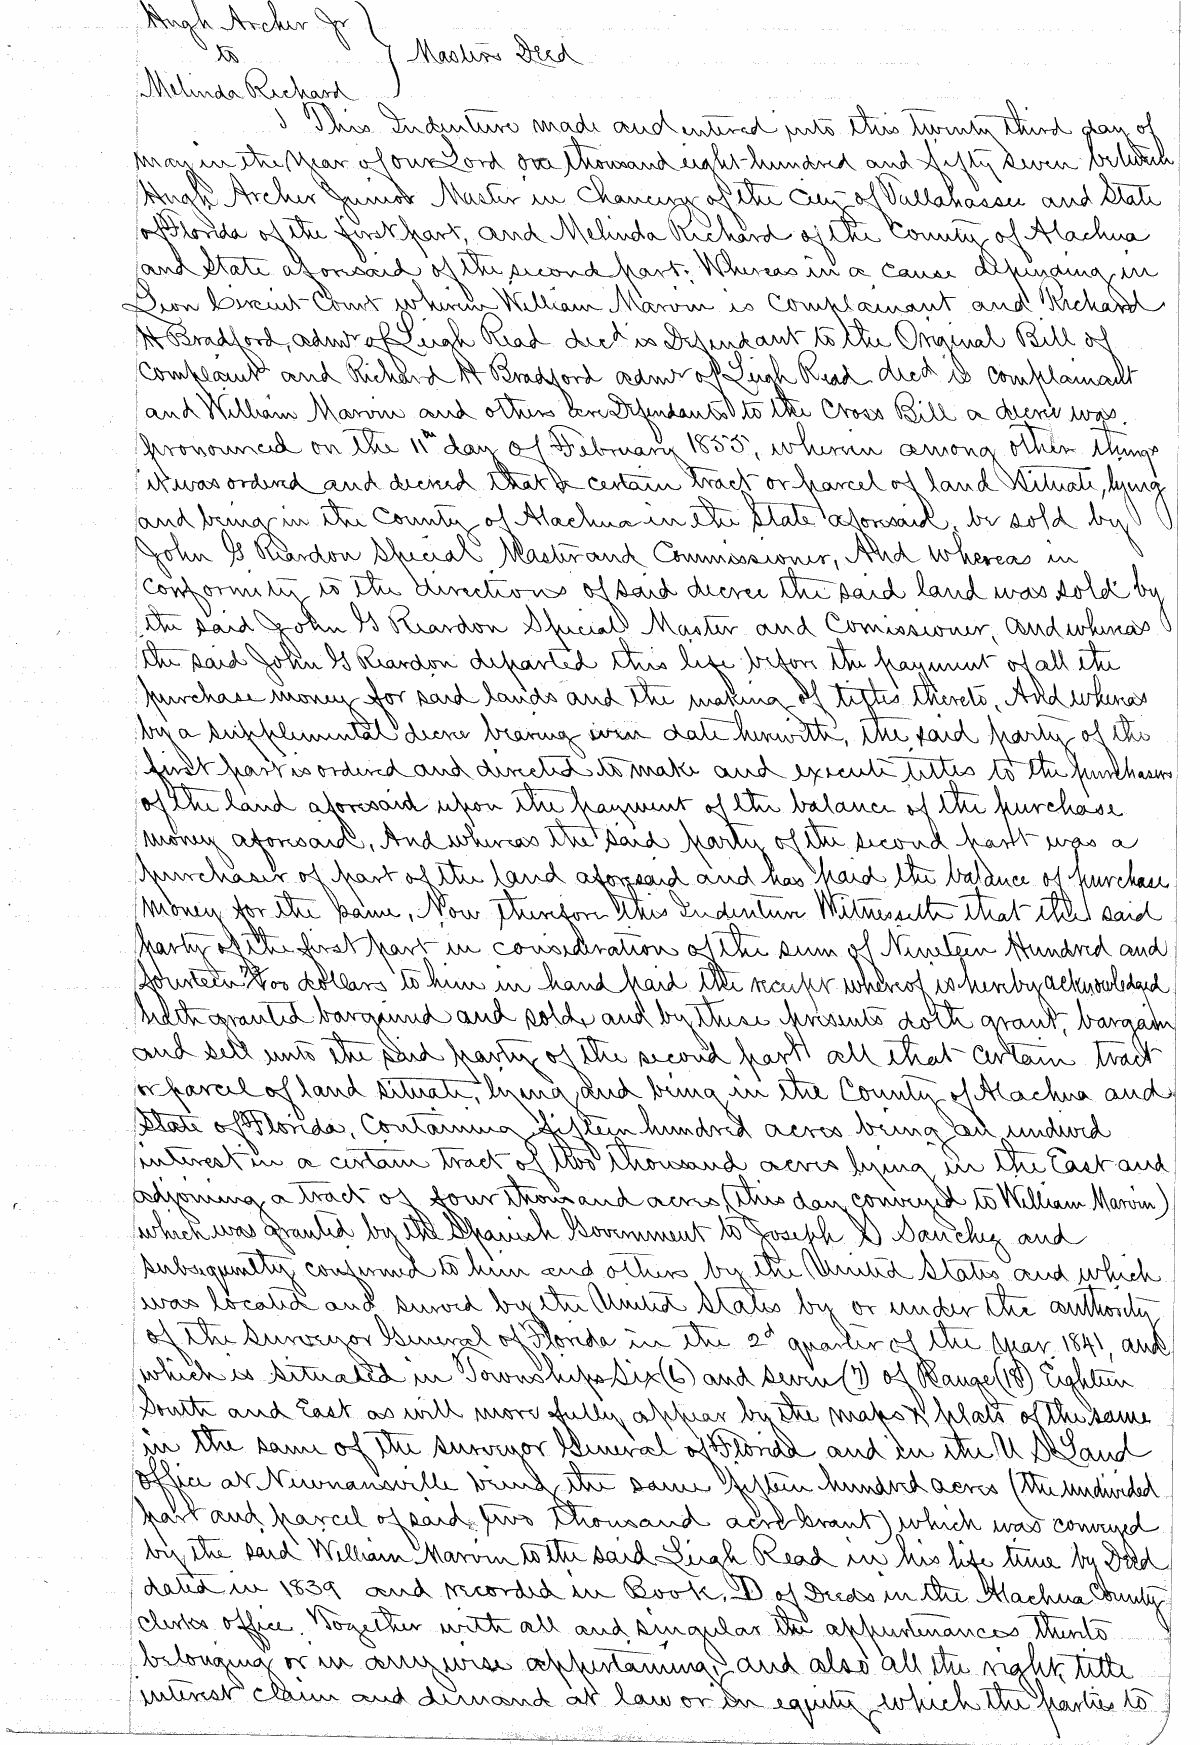 Hugh Archer Jr
to } Masters Deed
Melinda Richard
This Indenture made and entered into this twenty third day of
May in the Year of our Lord one thousand eight hundred and fifty seven between
Hugh Archer Junior Master in Chancery of the City of Tallahassee and State
of Florida of the first part, and Melinda Richard of the County of Alachua
and State aforesaid of the second part. Whereas in a cause depending in
Leon Circuit Court wherein William Marvin is Complainant and Richard
H Bradford, admr of Leigh Read decd is Defendant to the Original Bill of
Complaint and Richard H Bradford admr of Leigh Read decd is complainant
and William Marvin and others are Defendants to the Cross Bill a decree was
pronounced on the 11th day of February 1855, wherein among other things
it was ordered and decreed that a certain tract or parcel of land situate, lying
and being in the County of Alachua in the State aforesaid, be sold by
John G Reardon Special Master and Commissioner, And whereas in
conformity to the directions of said decree the said land was sold by
the said John G Reardon Special Master and Comissioner, and whereas
the said John G Reardon departed this life before the payment of all the
purchase money for said lands and the making of titles thereto, And whereas
by a supplemental decree bearing even date herewith, the said party of the
first part is ordered and directed to make and execute titles to the purchasers
of the land aforesaid upon the payment of the balance of the purchase
money aforesaid, And whereas the said party of the second part was a
purchaser of part of the land aforesaid and has paid the balance of purchase
money for the same, Now therefore this Indenture Witnesseth that the said
party of the first part in consideration of the sum of Nineteen Hundred and
fourteen /100 dollars to him in hand paid the receipt whereof is hereby acknowledged
hath granted bargained and sold, and by these presents doth grant, bargain
and sell unto the said party of the second part all that certain tract
or parcel of land situate, lying and being in the County of Alachua and
State of Florida, Containing fifteen hundred acres being an undivid
interest in a certain tract of two thousand acres lying in the East and
adjoining a tract of four thousand acres, (this day conveyed to William Marvin)
which was granted by the Spanish Government to Joseph S Sanchez and
subsequently confirmed to him and others by the United States and which
was located and surved by the United States by or under the authority
of the Surveyor General of Florida in the 2d quarter of the year 1841, and
which is situated in Townships Six (6) and seven (7) of Range (18) Eighteen
South and East as will more fully appear by the maps & plats of the same
in the same of the surveyor General of Florida and in the U S Land
office at Newnansville being the same fifteen hundred acres (the undivided
part and parcel of said two thousand acre Grant) which was conveyed
by the said William Marvin to the said Leigh Read in his life time by Deed
dated in 1839 and recorded in Book, D of Deeds in the Alachua County
clerks office. Together with all and singular the appurtenances thereto
belonging or in any wise appertaining, and also all the right title
interest claim and demand at law or in equity which the parties to